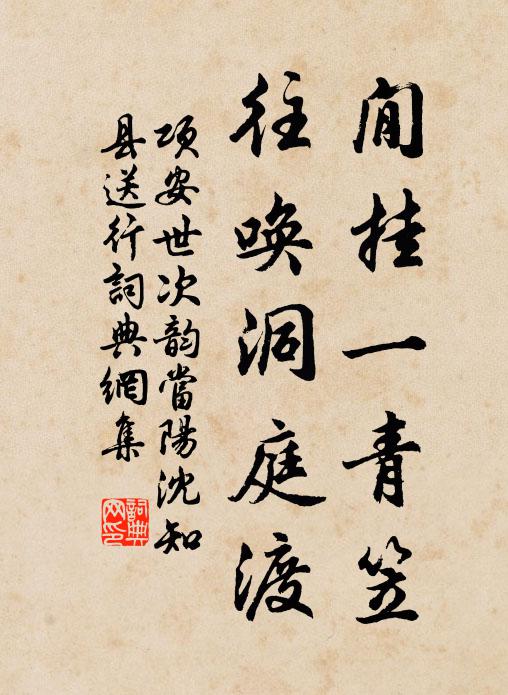 閒挂一青笠
往唤洞庭渡
项安世次韵當陽沈知
县送行詞典網集
詞典网印